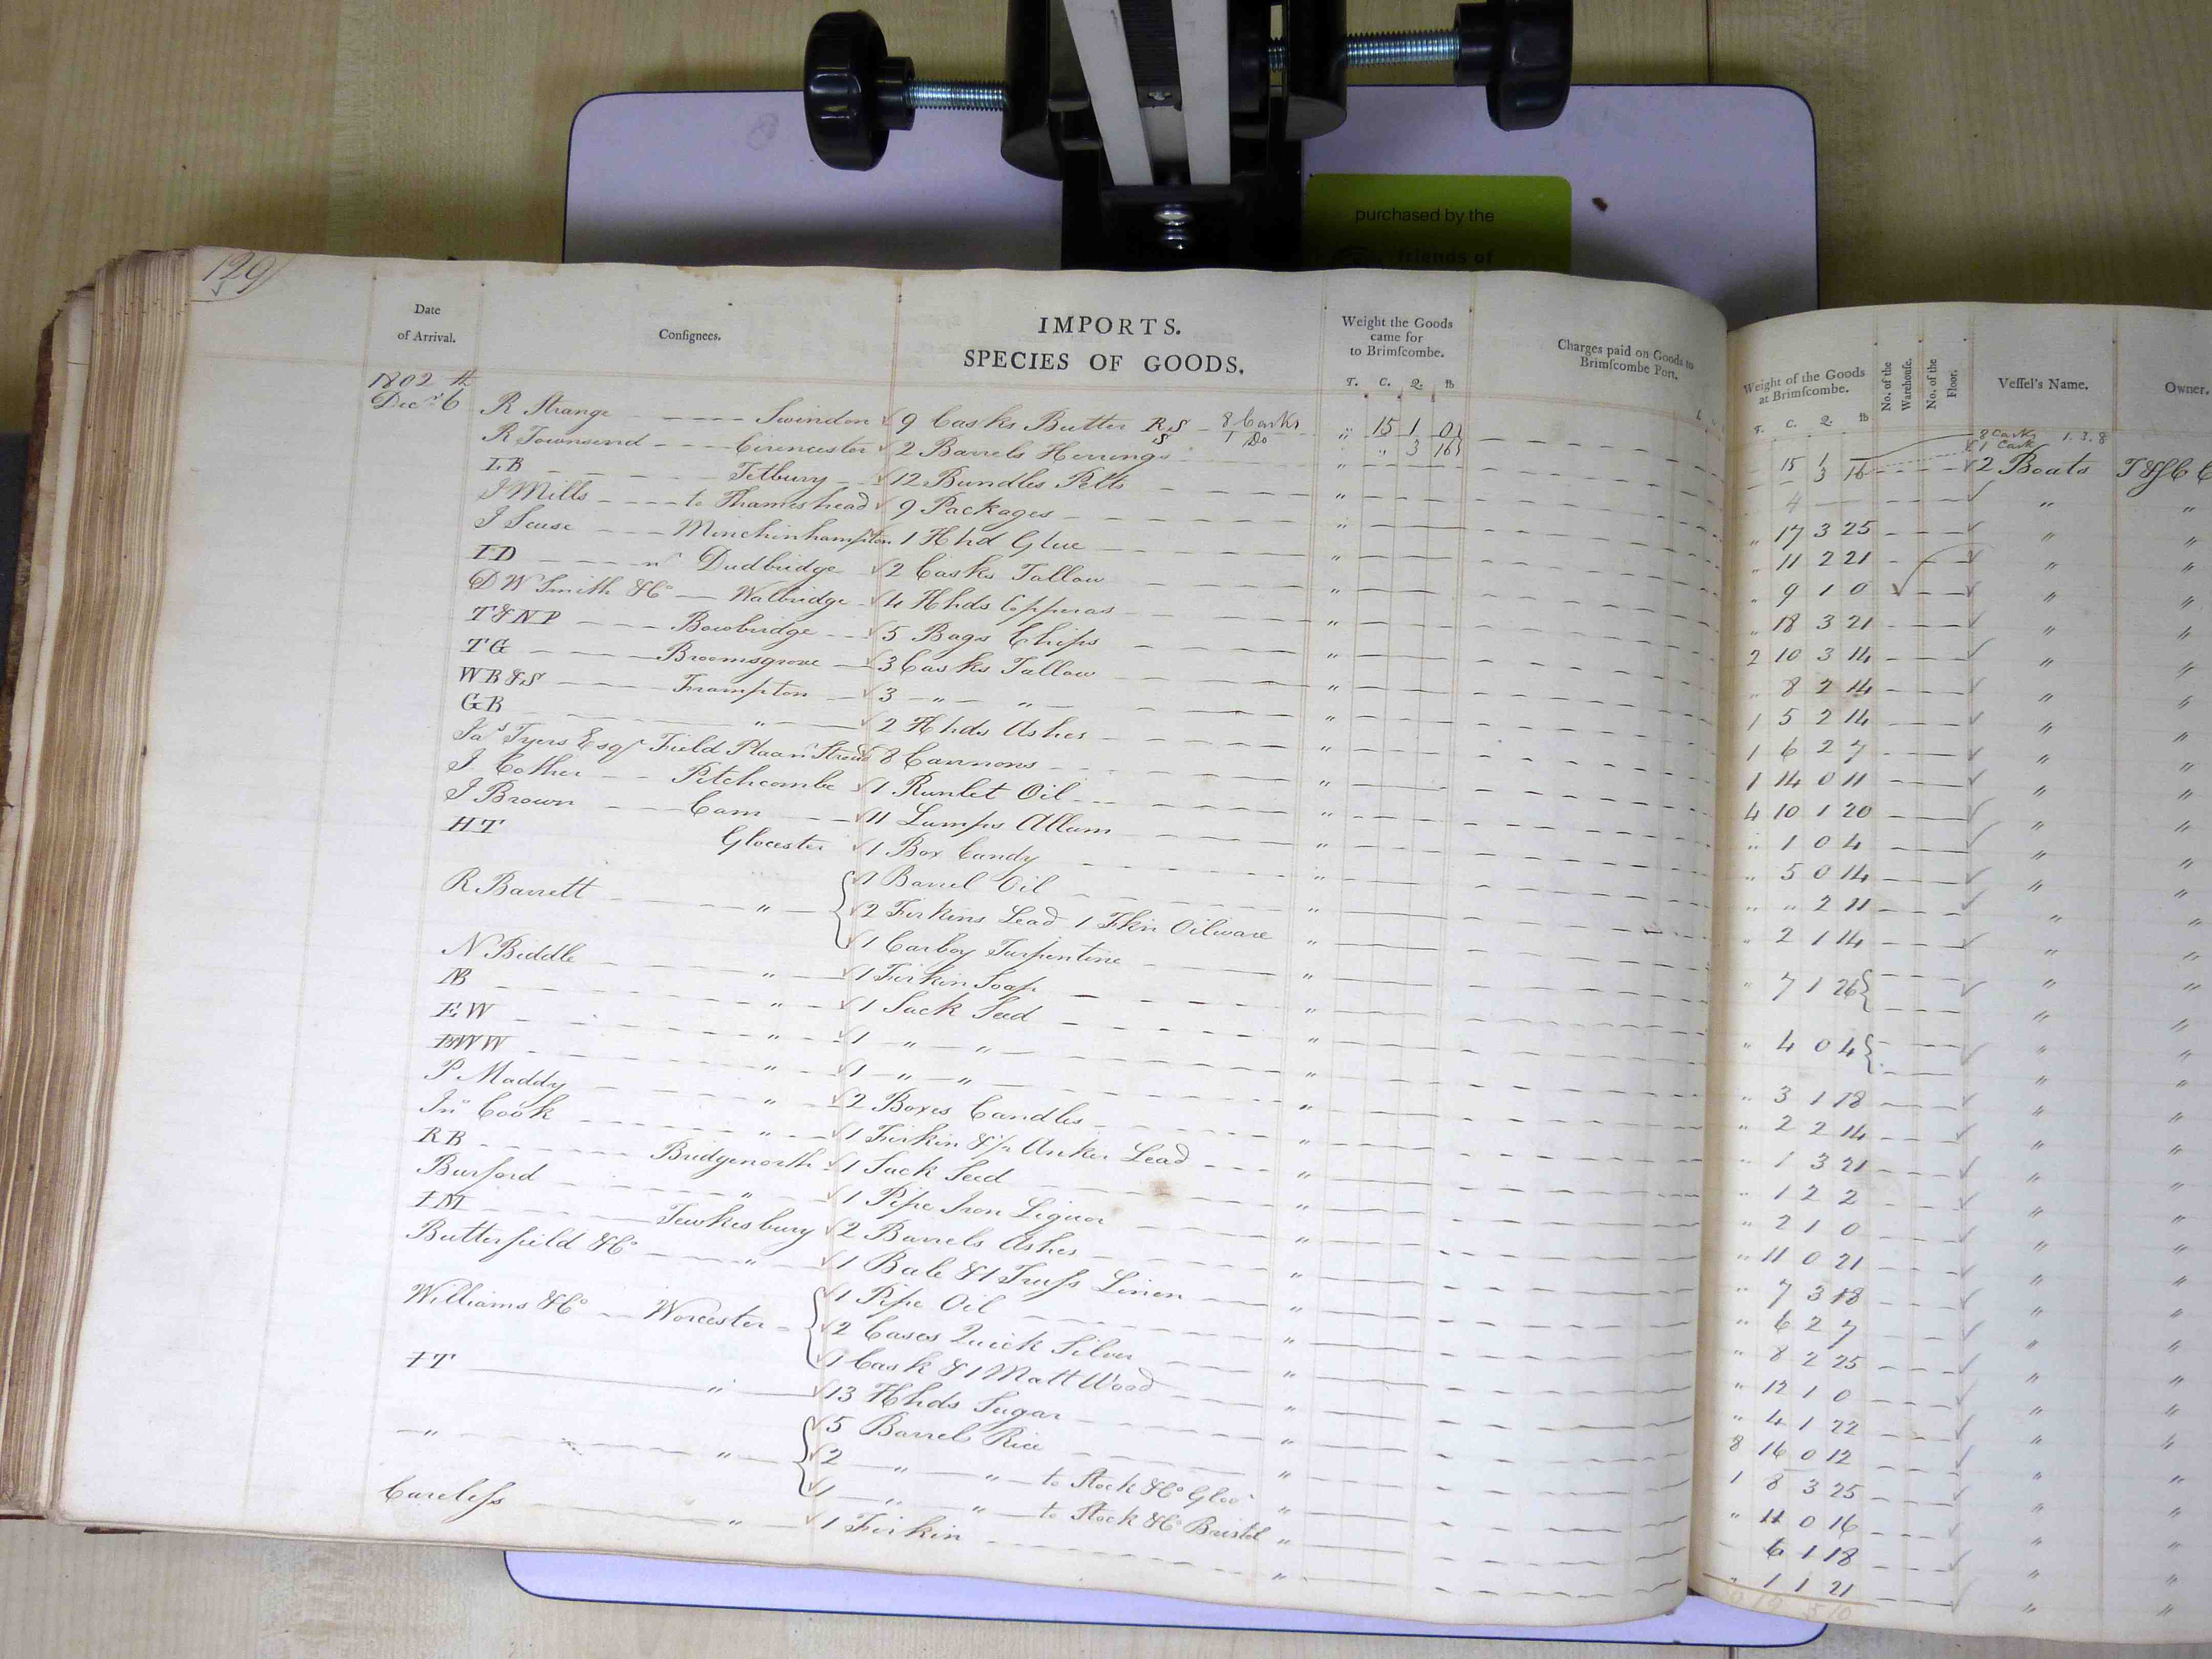 purchased by the
friends of
129
Date of Arrival. Consignees. IMPORTS. SPECIES OF GOODS. Weight the Goods came for to Brimſcombe. Charges paid on Goods to Brimſcombe Port. Weight of the Goods at Brimſcombe. No. of the Warehouſe. No. of the Floor. Veſſel's Name. Owner.
T. C. Q. lb T. C. Q. lb
1802
Decr 6th R Strange Swindon 9 Casks Butter RS 8 Casks 15 1 0 8 Casks 1.3.8
S 1 Do 1 Cask
R Townsend Cirencester 2 Barrels Herrings " 3 16 15 1 2 Boats
3 16
LB Tetbury 12 Bundles Pelts " 4 "
J Mills to Thameshead 9 Packages " 17 3 25 "
J Scuse Minchinhampton 1 Hhd Glue " 11 2 21 "
ID Dudbridge 2 Casks Tallow " 9 1 0 "
D W Smith & Co Walbridge 4 Hhds Copperas " 18 3 21 "
T&NP Bowbridge 5 Bags Chips " 2 10 3 14 "
TG Broomsgrove 3 Casks Tallow " 8 2 14 "
WB&S Frampton 3 " " " 1 5 2 14 "
GB " 2 Hhds Ashes " 1 6 2 7 "
Jas Tyers Esqr Field Place Stroud 8 Cannons " 1 14 0 11 "
J. Collier Pitchcombe 1 Runlet Oil " 4 10 1 20 "
J Brown Cam 11 Lumps Allum " 1 0 4 "
HT Glocester 1 Box Candy " 5 0 14 "
R Barrett " 1 Barrel Oil " " 2 11 "
2 Firkins Lead 1 Fkin Oilware " 2 1 14 "
1 Carboy Turpentine " 7 1 26 "
N Biddle " 1 Firkin Soap "
NB " 1 Sack Seed " 4 0 4 "
EW " 1 " " "
WW " 1 " " " 3 1 18 "
P Maddy " 2 Boxes Candles " 2 2 14 "
Jno Cook " 1 Firkin & 1/2 Anker Lead " 1 3 21 "
RB Bridgenorth 1 Sack Seed " 1 2 2 "
Burford " 1 Pipe Iron Liquor " 2 1 0 "
IM Tewkesbury 2 Barrels Ashes " 11 0 21 "
Butterfield & Co " 1 Bale & 1 Truſs Linen " 7 3 18 "
Williams & Co Worcester 1 Pipe Oil " 6 2 7 "
2 Cases Quick Silver " 8 2 25 "
1 Cask & 1 Matt Wood " 12 1 0 "
IT " 13 Hhds Sugar " 4 1 22 "
" " 5 Barrel Rice " 8 16 0 12 "
2 " " to Stock & Co Glor " 1 8 3 25 "
1 " " to Stock & Co Bristol " 11 0 16 "
Careleſs " 1 Firkin " 6 1 18 "
1 1 21 "